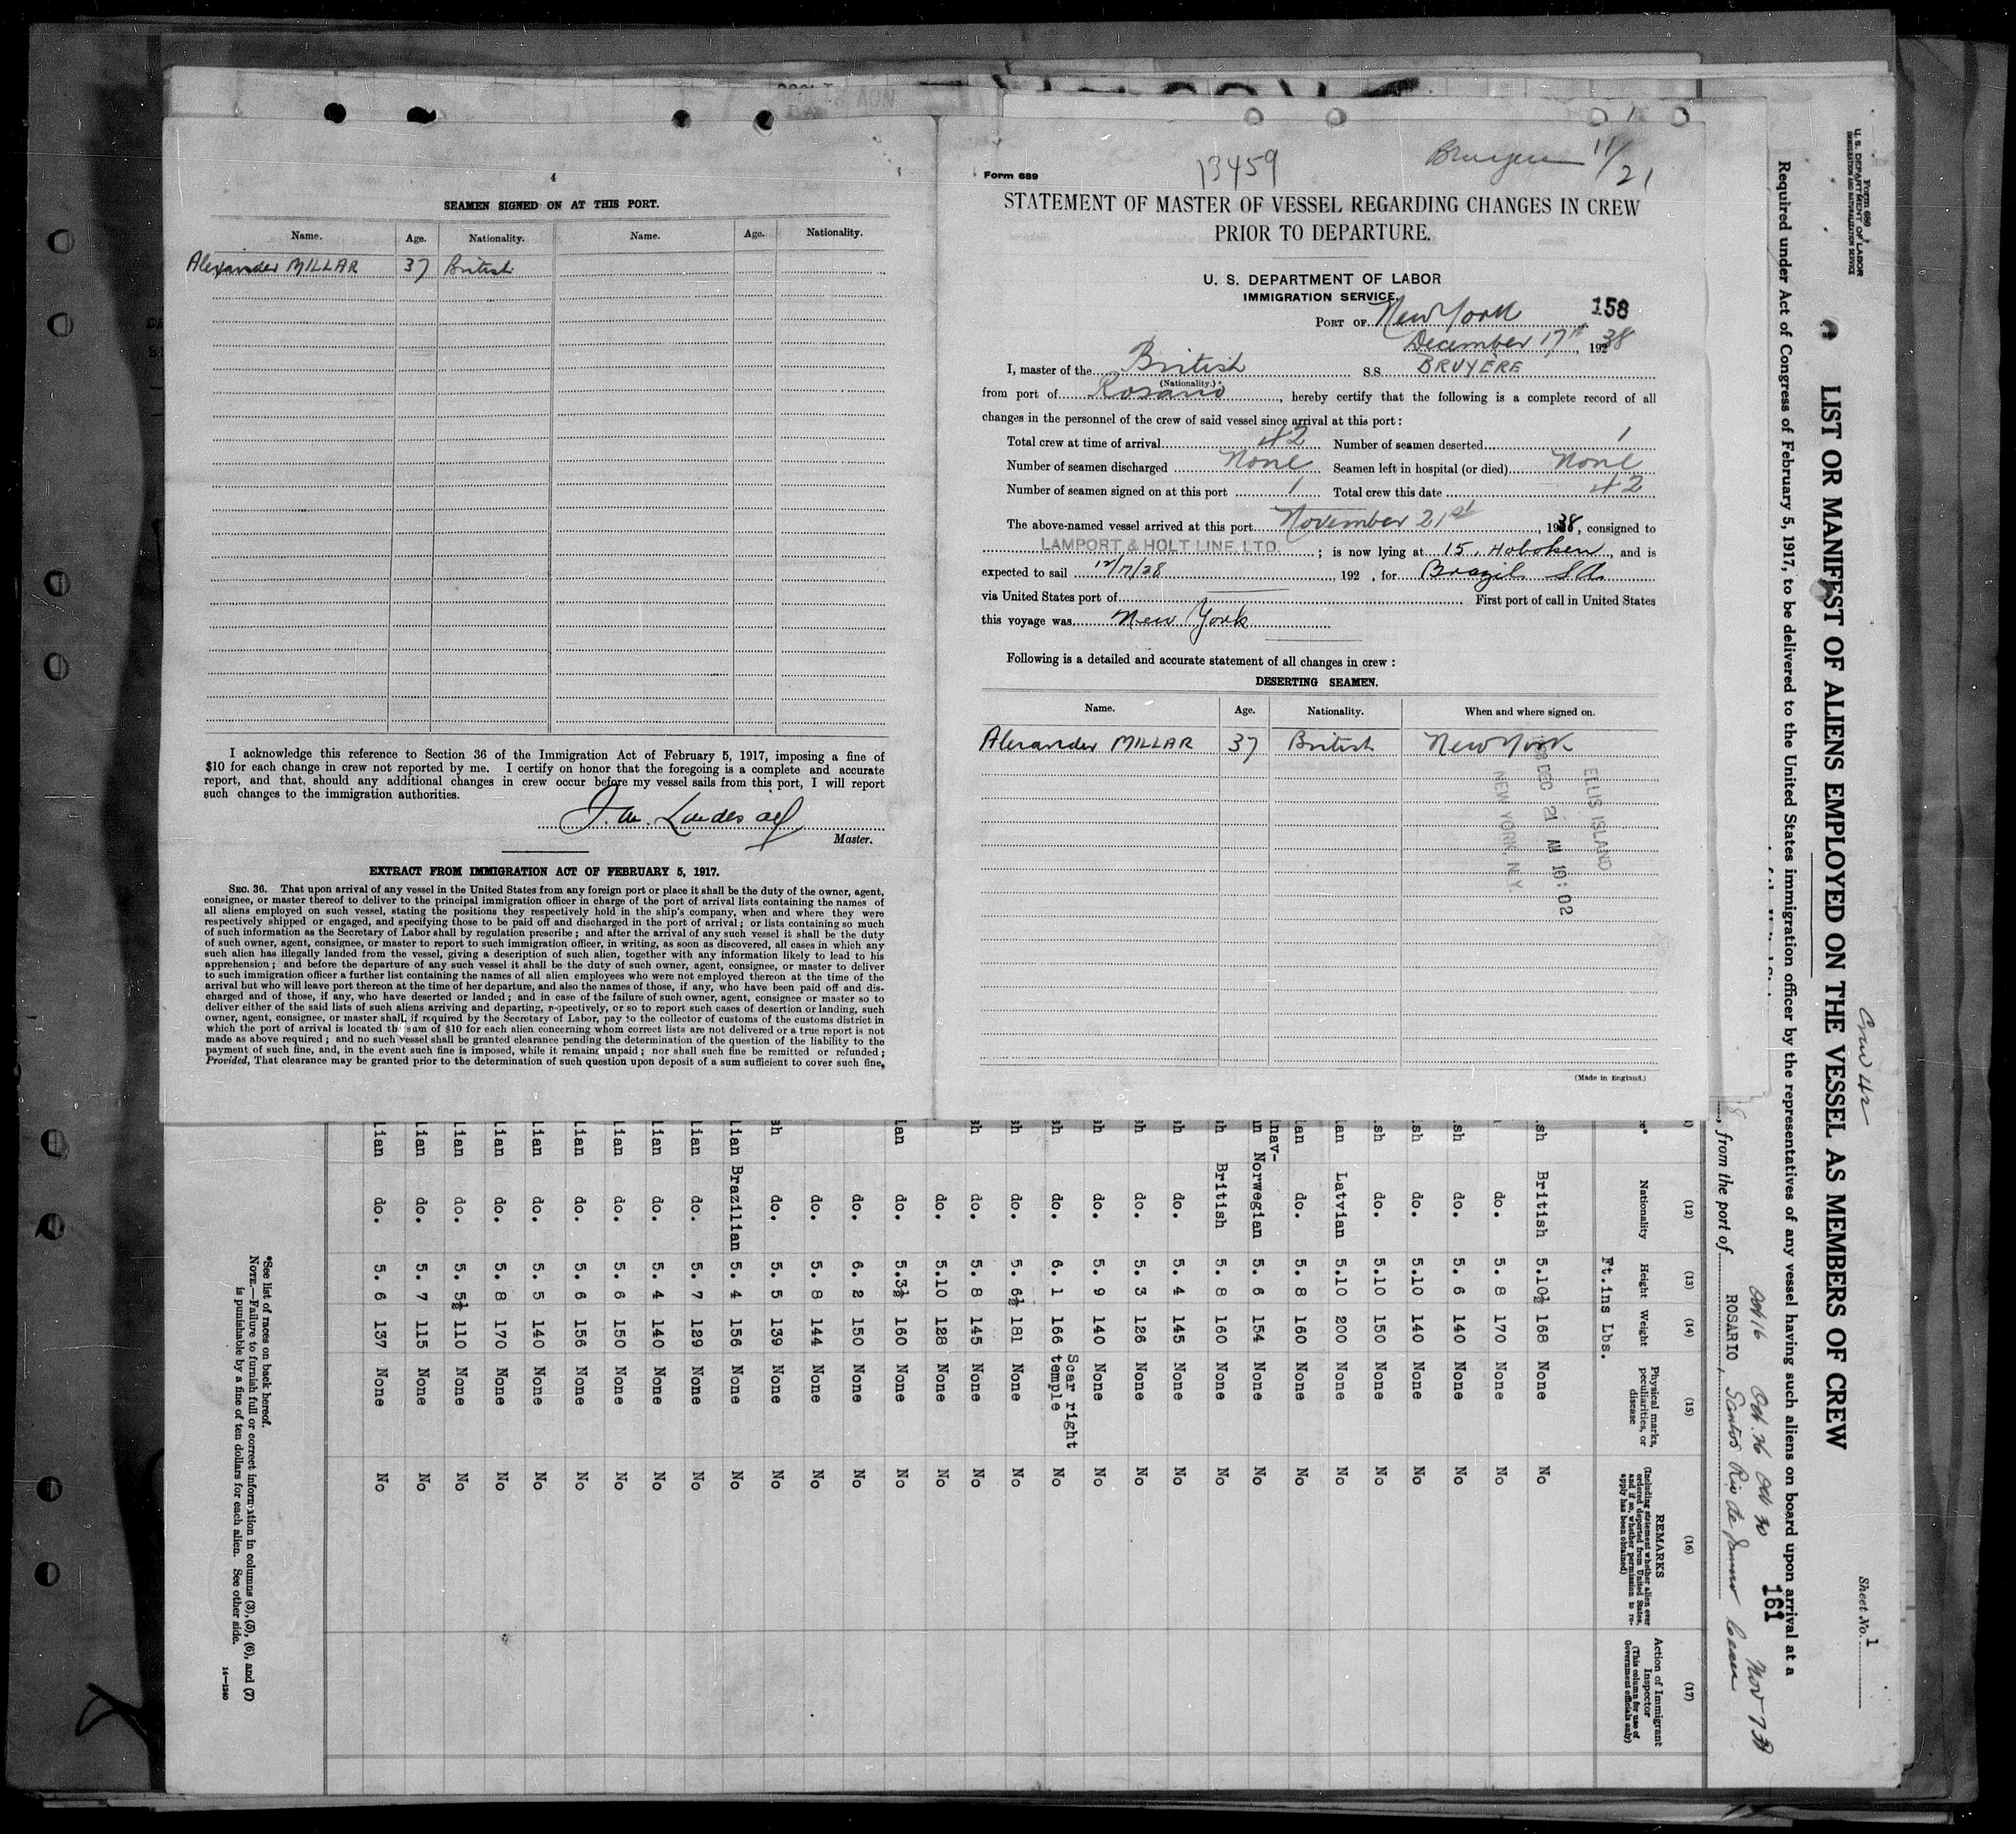 4
SEAMEN SIGNED ON AT THIS PORT.
Name. Age. Nationality. Name. Age. Nationality.
Alexander MILLAR 37 British
I acknowledge this reference to Section 36 of the Immigration Act of February 5, 1917, imposing a fine of
$10 for each change in crew not reported by me. I certify on honor that the foregoing is a complete and accurate
report, and that, should any additional changes in crew occur before my vessel sails from this port, I will report
such changes to the immigration authorities.
Master.
EXTRACT FROM IMMIGRATION ACT OF FEBRUARY 5, 1917.
SEC. 36. That upon arrival of any vessel in the United States from any foreign port or place it shall be the duty of the owner, agent,
consignee, or master thereof to deliver to the principal immigration officer in charge of the port of arrival lists containing the names of
all aliens employed on such vessel, stating the positions they respectively hold in the ship's company, when and where they were
respectively shipped or engaged, and specifying those to be paid off and discharged in the port of arrival; or lists containing so much
of such information as the Secretary of Labor shall by regulation prescribe; and after the arrival of any such vessel it shall be the duty
of such owner, agent, consignee, or master to report to such immigration officer, in writing, as soon as discovered, all cases in which any
such alien has illegally landed from the vessel, giving a description of such alien, together with any information likely to lead to his
apprehension; and before the departure of any such vessel it shall be the duty of such owner, agent, consignee, or master to deliver
to such immigration officer a further list containing the names of all alien employees who were not employed thereon at the time of the
arrival but who will leave port thereon at the time of her departure, and also the names of those, if any, who have been paid off and dis-
charged and of those, if any, who have deserted or landed; and in case of the failure of such owner, agent, consignee or master so to
deliver either of the said lists of such aliens arriving and departing, respectively, or so to report such cases of desertion or landing, such
owner, agent, consignee, or master shall, if required by the Secretary of Labor, pay to the collector of customs of the customs district in
which the port of arrival is located the sum of $10 for each alien concerning whom correct lists are not delivered or a true report is not
made as above required; and no such vessel shall be granted clearance pending the determination of the question of the liability to the
payment of such fine, and, in the event such fine is imposed, while it remains unpaid; nor shall such fine be remitted or refunded;
Provided, That clearance may be granted prior to the determination of such question upon deposit of a sum sufficient to cover such fine,
13459
Bruyere 11/21
Form 689
STATEMENT OF MASTER OF VESSEL REGARDING CHANGES IN CREW
PRIOR TO DEPARTURE.
U. S. DEPARTMENT OF LABOR
IMMIGRATION SERVICE.
158
PORT OF New York
December 17th, 1938
I, master of the British S.S. BRUYÈRE
(Nationality.)
from port of Rosario, hereby certify that the following is a complete record of all
changes in the personnel of the crew of said vessel since arrival at this port:
Total crew at time of arrival 42 Number of seamen deserted 1
Number of seamen discharged None Seamen left in hospital (or died) None
Number of seamen signed on at this port 1 Total crew this date 42
The above-named vessel arrived at this port November 21st, 1938, consigned to
LAMPORT & HOLT LINE, LTD.; is now lying at 15, Hoboken, and is
expected to sail 12/17/38 192 , for Brazil S.A.
via United States port of First port of call in United States
this voyage was New York
Following is a detailed and accurate statement of all changes in crew:
DESERTING SEAMEN.
Name. Age. Nationality. When and where signed on.
Alexander MILLAR 37 British New York
ELLIS ISLAND
DEC 21 AM 10:02
NEW YORK, N.Y.
(Made in England.)
Form 680
U. S. DEPARTMENT OF LABOR
IMMIGRATION AND NATURALIZATION SERVICE
Crew 42
Sheet No. 1
LIST OR MANIFEST OF ALIENS EMPLOYED ON THE VESSEL AS MEMBERS OF CREW
Required under Act of Congress of February 5, 1917, to be delivered to the United States immigration officer by the representatives of any vessel having such aliens on board upon arrival at a
161
Oct 16 Oct. 26 Oct 30 Nov 7 38
, from the port of ROSARIO, Santos Rio de Janeiro
(12) (13) (14) (15) (16) (17)
Nationality Height Weight Physical marks, peculiarities, or disease REMARKS (Including statement whether alien ever ordered deported from United States, and if so, whether permission to re-apply has been obtained) Action of Immigrant Inspector (This column for use of Government officials only)
Ft.ins Lbs.
sh British 5.10½ 168 None No
do. 5. 8 170 None No
sh do. 5. 6 140 None No
sh do. 5.10 140 None No
sh do. 5.10 150 None No
ian Latvian 5.10 200 None No
ian do. 5. 8 160 None No
inav-
n Norwegian 5. 6 154 None No
sh British 5. 8 160 None No
sh do. 5. 4 145 None No
sh do. 5. 3 126 None No
sh do. 5. 9 140 None No
sh do. 6. 1 166 Scar right temple No
sh do. 5. 6½ 181 None No
sh do. 5. 8 145 None No
do. 5.10 128 None No
ian do. 5.3½ 160 None No
do. 6. 2 150 None No
do. 5. 8 144 None No
sh do. 5. 5 139 None No
lian Brazilian 5. 4 156 None No
lian do. 5. 7 129 None No
lian do. 5. 4 140 None No
lian do. 5. 6 150 None No
lian do. 5. 6 156 None No
lian do. 5. 5 140 None No
lian do. 5. 8 170 None No
lian do. 5. 5½ 110 None No
lian do. 5. 7 115 None No
lian do. 5. 6 137 None No
*See list of races on back hereof.
NOTE.—Failure to furnish full or correct information in columns (3), (5), (6), and (7)
is punishable by a fine of ten dollars for each alien. See other side.
14—1240